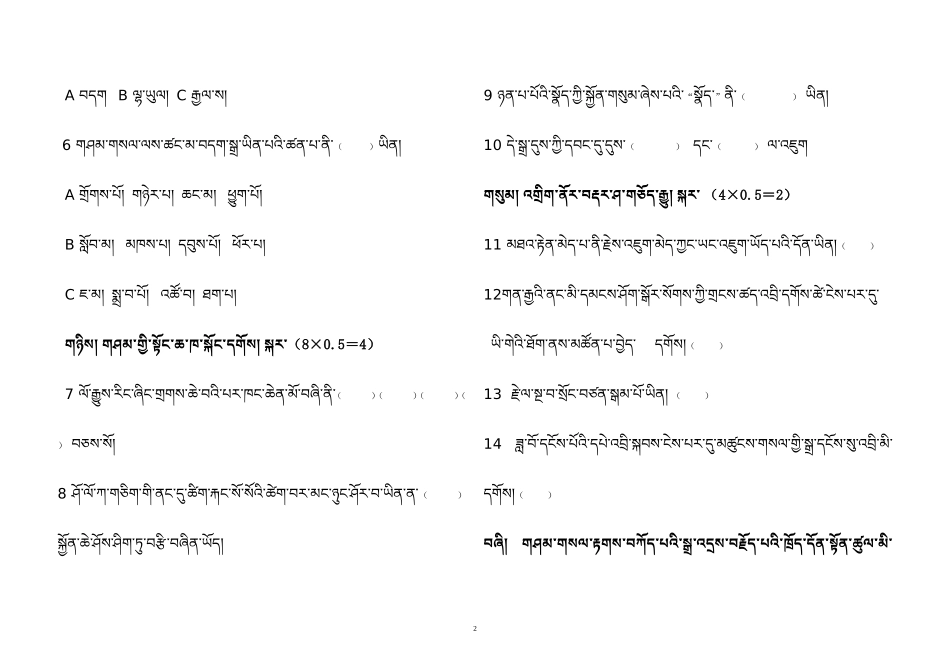 A བདག། B ལྷ་ཡུལ། C རྒྱལ་ས།
6 གཤམ་གསལ་ལས་ཚང་མ་བདག་སྒྲ་ཡིན་པའི་ཚན་པ་ནི་（ ）ཡིན།
A གྲོགས་པོ། གཉེར་པ། ཆང་མ། ཕྱུག་པོ།
B སློབ་མ། མཁས་པ། དབུས་པོ། ཕོར་པ།
C ཇ་མ། སྨྲ་བ་པོ། འཚོ་བ། ཐག་པ།
གཉིས། གཤམ་གྱི་སྟོང་ཆ་ཁ་སྐོང་དགོས། སྐར་（8×0.5＝4）
7 ལོ་རྒྱུས་རིང་ཞིང་གྲགས་ཆེ་བའི་པར་ཁང་ཆེན་མོ་བཞི་ནི་（ ）（ ）（ ）（
）བཅས་སོ།
8 ཤོ་ལོ་ཀ་གཅིག་གི་ནང་དུ་ཚིག་རྐང་སོ་སོའི་ཚེག་བར་མང་ཉུང་ཤོར་བ་ཡིན་ན་（ ）
སྐྱོན་ཆེ་ཤོས་ཤིག་ཏུ་བརྩི་བཞིན་ཡོད།
9 ཉན་པ་པོའི་སྣོད་ཀྱི་སྐྱོན་གསུམ་ཞེས་པའི་“སྣོད་”ནི་（ ）ཡིན།
10 དེ་སྒྲ་དུས་ཀྱི་དབང་དུ་དུས་（ ）དང་（ ）ལ་འཇུག
གསུམ། འགྲིག་ནོར་བརྡར་ཤ་གཅོད་རྒྱུ། སྐར་（4×0.5＝2）
11 མཐའ་རྟེན་མེད་པ་ནི་རྗེས་འཇུག་མེད་ཀྱང་ཡང་འཇུག་ཡོད་པའི་དོན་ཡིན།（ ）
12གན་རྒྱའི་ནང་མི་དམངས་ཤོག་སྒོར་སོགས་ཀྱི་གྲངས་ཚད་འབྲི་དགོས་ཚེ་ངེས་པར་དུ་
ཡི་གེའི་ཐོག་ནས་མཚོན་པ་བྱེད་ དགོས།（ ）
13 རྗེ་ལ་སྔ་བ་སྲོང་བཙན་སྒམ་པོ་ཡིན།（ ）
14 ཟླ་བོ་དངོས་པོའི་དཔེ་འབྲི་སྐབས་ངེས་པར་དུ་མཚུངས་གསལ་གྱི་སྒྲ་དངོས་སུ་འབྲི་མི་
དགོས།（ ）
བཞི། གཤམ་གསལ་རྟགས་བཀོད་པའི་སྒྲ་འདྲས་བརྗོད་པའི་ཁྲོད་དོན་སྟོན་ཚུལ་མི་
2